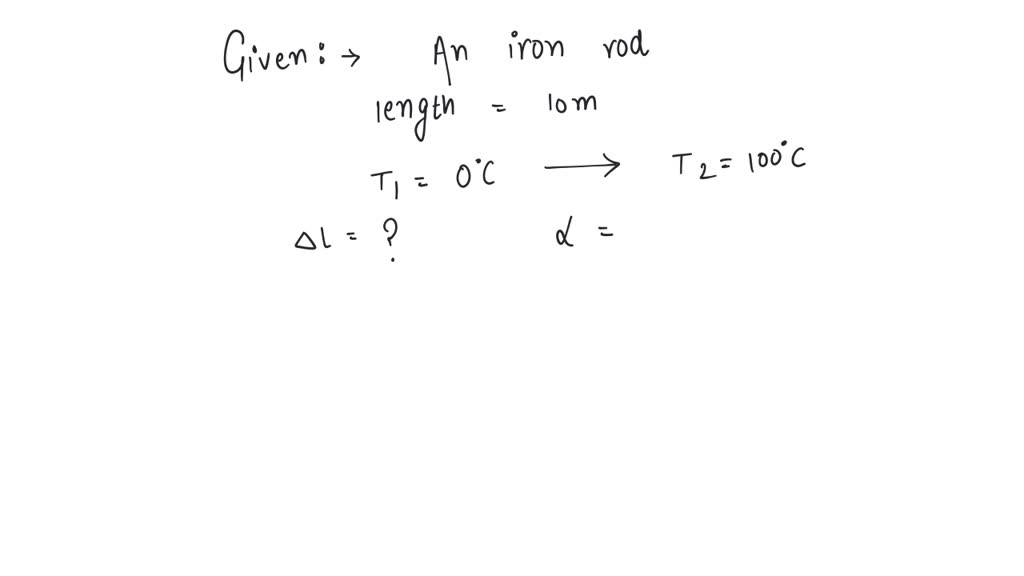 Given: → An iron rod
length = 10m
T₁ = 0°C → T₂ = 100°C
Δl = ? α =